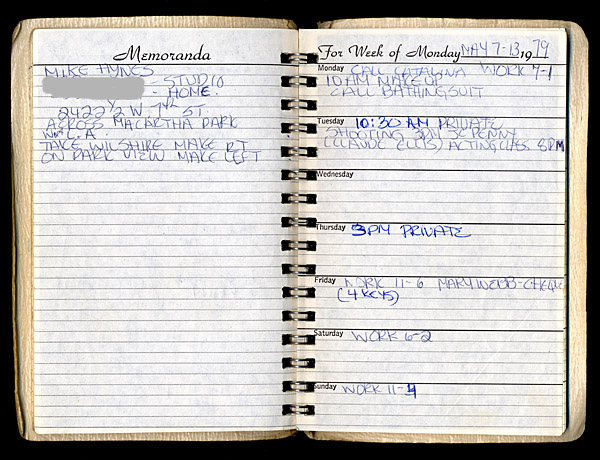 Memoranda
MIKE HYNES
- STUDIO
- HOME.
2422 1/2 W 7th ST.
ACROSS MACARTHA PARK
L.A.
TAKE WILSHIRE MAKE RT
ON PARK VIEW MAKE LEFT
For Week of Monday MAY 7-13 1979
Monday CALL CATALINA WORK
10 AM MAKEUP
CALL BATHINGSUIT
Tuesday 10:30 AM PRIVATE
SHOOTING 3PM JC PENNY
(CLAUDE ELLIS) ACTING CLASS 8PM
Wednesday
Thursday 3PM PRIVATE
Friday WORK 11-6 MARY WEBB-
Saturday WORK 6-2
Sunday WORK 11-4